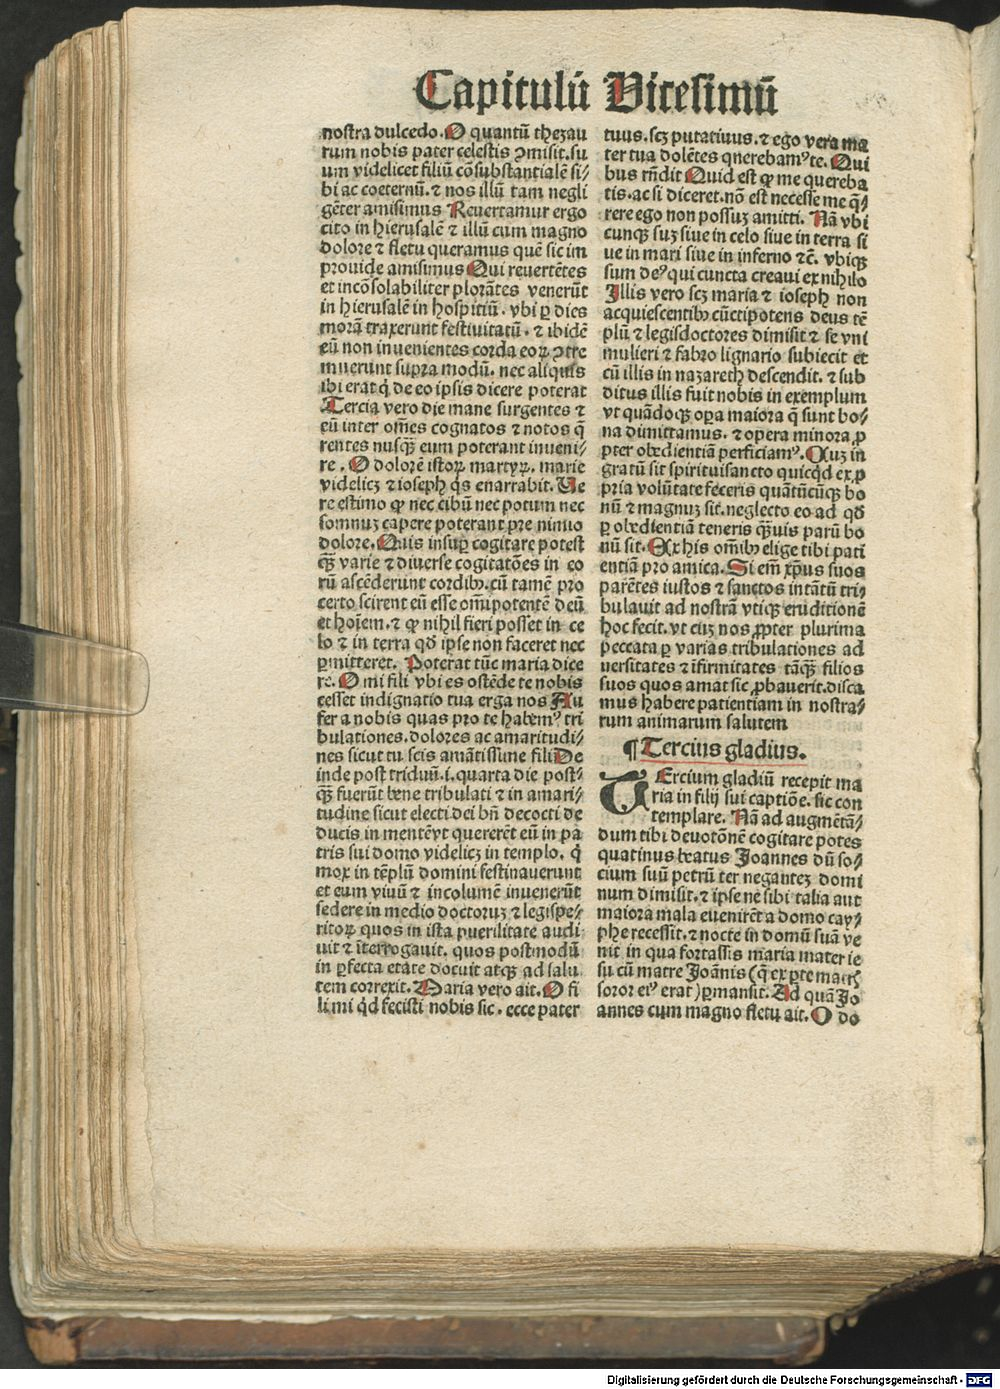 Capitulū Vicesimū
nostra dulcedo. O quantū thezau
rum nobis pater celestis ꝯmisit. su
um videlicet filiū cōsubstantialē si⸗
bi ac coeternū. ⁊ nos illū tam negli
gēter amisimus Reuertamur ergo
cito in hierusalē ⁊ illū cum magno
dolore ⁊ fletu queramus quē sic im
prouide amisimus Qui reuertētes
et incōsolabiliter plorātes venerūt
in hierusalē in hospitiū. vbi ꝑ dies
morā traxerunt festiuitatū. ⁊ ibidē
eū non inuenientes corda eoꝝ ꝯtre
muerunt supra modū. nec aliquis
ibi erat q̇ de eo ipsis dicere poterat
Tercia vero die mane surgentes ⁊
eū inter om̄es cognatos ⁊ notos q̄
rentes nusq̄ȝ eum poterant inueni⸗
re. O dolorē istoꝝ martyꝝ. marie
videlicȝ ⁊ ioseph q̇s enarrabit. Ue
re estimo ꝙ nec cibū nec potum nec
somnuȝ capere poterant pre nimio
dolore. Quis insuꝑ cogitare potest
q̄ȝ varie ⁊ diuerse cogitatōes in co
rū ascēderunt cordibꝫ. cū tamē pro
certo scirent eū esse om̄ipotentē deū
et hoīem. ⁊ ꝙ nihil fieri posset in ce
lo ⁊ in terra qd̄ ip̄se non faceret nec
ꝑmitteret. Poterat tūc maria dice
re. O mi fili vbi es ostēde te nobis
cesset indignatio tua erga nos Au
fer a nobis quas pro te habemꝰ tri
bulationes. dolores ac amaritudi⸗
nes sicut tu scis amātissime fili De
inde post triduū. i. quarta die post⸗
q̄ȝ fuerūt bene tribulati ⁊ in amari⸗
tudine sicut electi dei bn̄ decocti de
ducis in mentē vt quererēt eū in pa
tris sui domo videlicȝ in templo. q̇
mox in tēplū domini festinauerunt
et eum viuū ⁊ incolumē inuenerūt
sedere in medio doctoruȝ ⁊ legispe⸗
ritoꝝ quos in ista puerilitate audi
uit ⁊ īterrogauit. quos postmodū
in ꝑfecta etate docuit atqꝫ ad salu
tem correxit. Maria vero ait. O fi
li mi qd́ fecisti nobis sic. ecce pater
tuus. scȝ putatiuus. ⁊ ego vera ma
ter tua dolētes querebamꝰ te. Qui
bus rn̄dit Quid est ꝙ me quereba
tis. ac si diceret. nō est necesse me q̄⸗
rere ego non possuȝ amitti. Nā vbi
cunqꝫ suȝ siue in celo siue in terra si
ue in mari siue in inferno ⁊c̄. vbiqꝫ
sum deꝰ qui cuncta creaui ex nihilo
Illis vero scȝ maria ⁊ ioseph non
acquiescentibꝫ cūctipotens deus tē
plū ⁊ legisdoctores dimisit ⁊ se vni
mulieri ⁊ fabro lignario subiecit et
cū illis in nazareth descendit. ⁊ sub
ditus illis fuit nobis in exemplum
vt quādoqꝫ oꝑa maiora q̄ sunt bo⸗
na dimittamus. ⁊ opera minora ꝓ
pter obedientiā perficiamꝰ. Quȝ in
gratū sit spirituisancto quicqd́ ex ꝓ
pria volūtate feceris quātūcūqꝫ bo
nū ⁊ magnuȝ sit. neglecto eo ad qd̄
ꝑ obedientiā teneris q̄ȝuis parū bo
nū sit. Ex his om̄ibꝫ elige tibi pati
entiā pro amica. Si em̄ xp̄us suos
parētes iustos ⁊ sanctos intātū tri⸗
bulauit ad nostrā vtiqꝫ eruditionē
hoc fecit. vt cuȝ nos ꝓpter plurima
peccata ꝑ varias tribulationes ad
uersitates ⁊ īfirmitates tāq̄ȝ filios
suos quos amat sic ꝓbauerit. disca
mus habere patientiam in nostra⸗
rum animarum salutem
¶ Tercius gladius.
TErcium gladiū recepit ma
ria in filij sui captiōe. sic con
templare. Nā ad augmētā⸗
dum tibi deuotōnē cogitare potes
quatinus beatus Joannes dū so⸗
cium suū petrū ter neganteȝ domi
num dimisit. ⁊ ip̄se ne sibi talia aut
maiora mala euenirēt a domo cay⸗
phe recessit. ⁊ nocte in domū suā ve
nit in qua fortassis maria mater ie
su cū matre Joānis (q̄ ex ꝑte matꝛ̄
soror eiꝰ erat) ꝑmansit. Ad quā Jo
annes cum magno fletu ait. O do
Digitalisierung gefördert durch die Deutsche Forschungsgemeinschaft - DFG